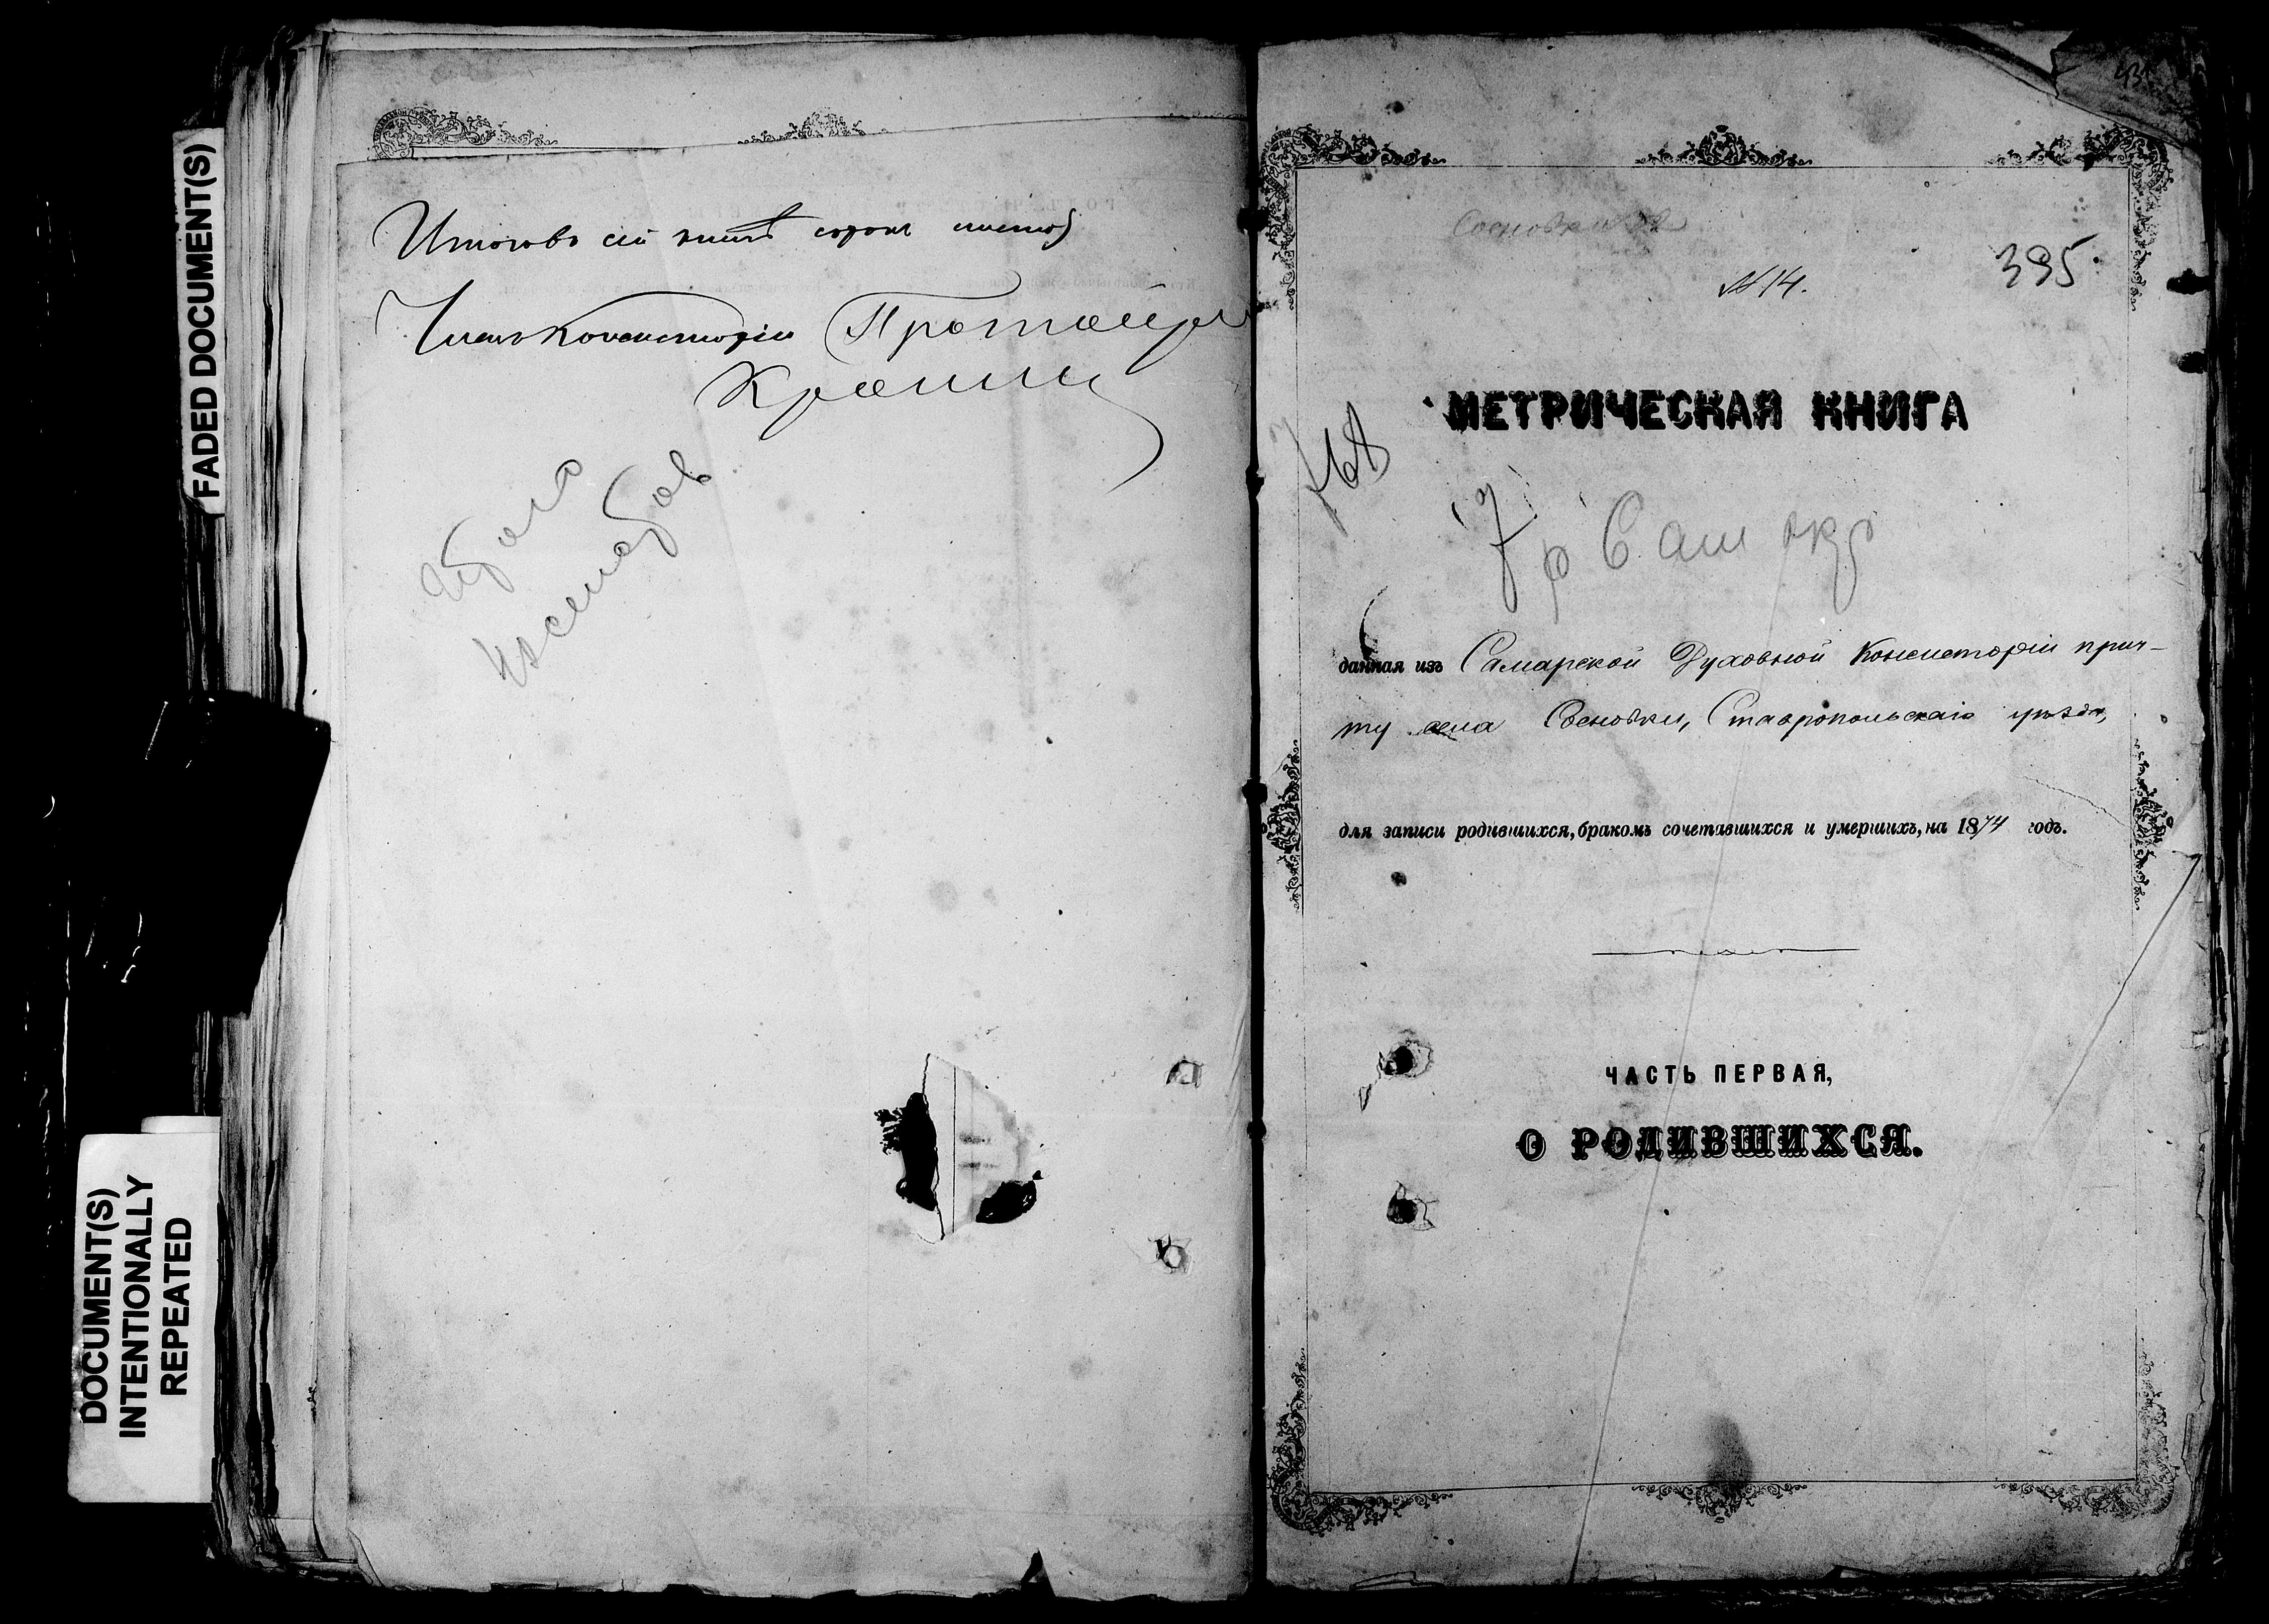 FADED DOCUMENT(S)
DOCUMENT(S)
INTENTIONALLY
REPEATED
Итого въ сей книгѣ сорокъ листов
Членъ Консисторіи Протоіерей
395
№ 14.
МЕТРИЧЕСКАЯ КНИГА
данная изъ Самарской Духовной Консисторіи прич-
ту села Сосновки, Ставропольскаго уѣзда,
для записи родившихся, бракомъ сочетавшихся и умершихъ, на 1874 годъ.
ЧАСТЬ ПЕРВАЯ,
О РОДИВШИХСЯ.